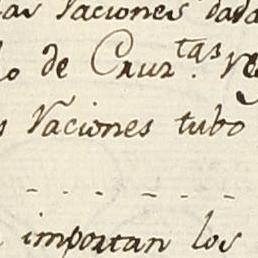 as Vaciones dada
o de Cruz.tas re
s Vaciones tubo
importan los